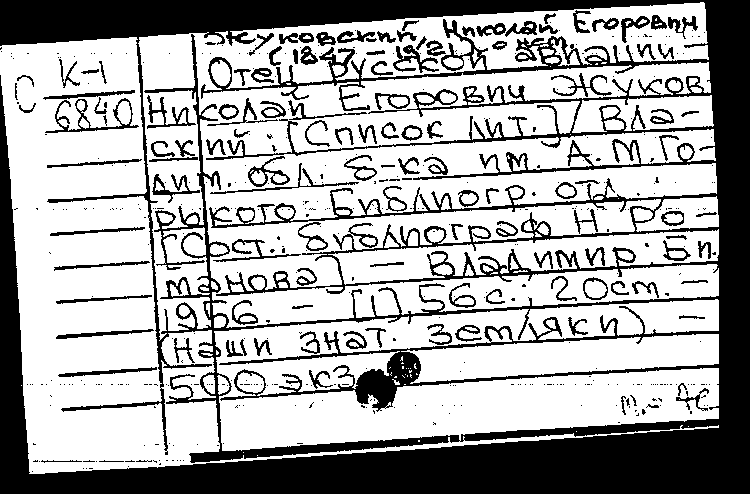 Жуковский Николай Егорович
(1847 – 1921). о нем
К-1 Отец русской авиации –
С 6840 Николай Егорович Жуков
ский : [Список лит.] / Вла-
дим. обл. б-ка им. А. М. Го-
рького. Библиогр. отд. ;
[Сост.: библиограф Н. Ро-
манова]. – Владимир : Б.и.,
1956. – [1], 56 с. ; 20 см. –
(Наши знат. земляки). –
500 экз